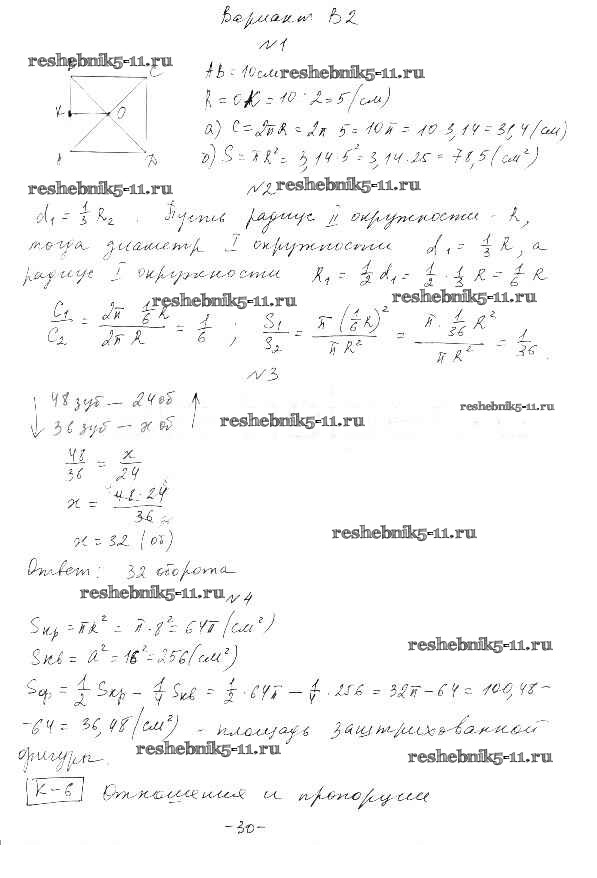 Вариант В2
№1
reshebnik5-11.ru
C
K
O
A
D
AB = 10см reshebnik5-11.ru
R = OK = 10 : 2 = 5 (см)
а) C = 2πR = 2π · 5 = 10π = 10 · 3,14 = 31,4 (см)
б) S = πR² = 3,14 · 5² = 3,14 · 25 = 78,5 (см²)
reshebnik5-11.ru №2 reshebnik5-11.ru
d₁ = 1/3 R₂. Пусть радиус II окружности - R,
тогда диаметр I окружности d₁ = 1/3 R, а
радиус I окружности R₁ = 1/2 d₁ = 1/2 · 1/3 R = 1/6 R
reshebnik5-11.ru reshebnik5-11.ru
C₁/C₂ = (2π · 1/6 R)/(2π R) = 1/6 ; S₁/S₂ = π(1/6 R)²/πR² = (π · 1/36 R²)/πR² = 1/36.
№3
↓ 48 зуб — 24 об ↑
36 зуб — x об
reshebnik5-11.ru
reshebnik5-11.ru
48/36 = x/24
x = (48 · 24)/36
x = 32 (об)
reshebnik5-11.ru
Ответ: 32 оборота
reshebnik5-11.ru №4
Sкр = πR² = π · 8² = 64π (см²)
Sкв = a² = 16² = 256 (см²)
reshebnik5-11.ru
Sф = 1/2 Sкр - 1/4 Sкв = 1/2 · 64π - 1/4 · 256 = 32π - 64 = 100,48 -
- 64 = 36,48 (см²) - площадь заштрихованной
фигуры. reshebnik5-11.ru reshebnik5-11.ru
К-6 Отношения и пропорции
-30-